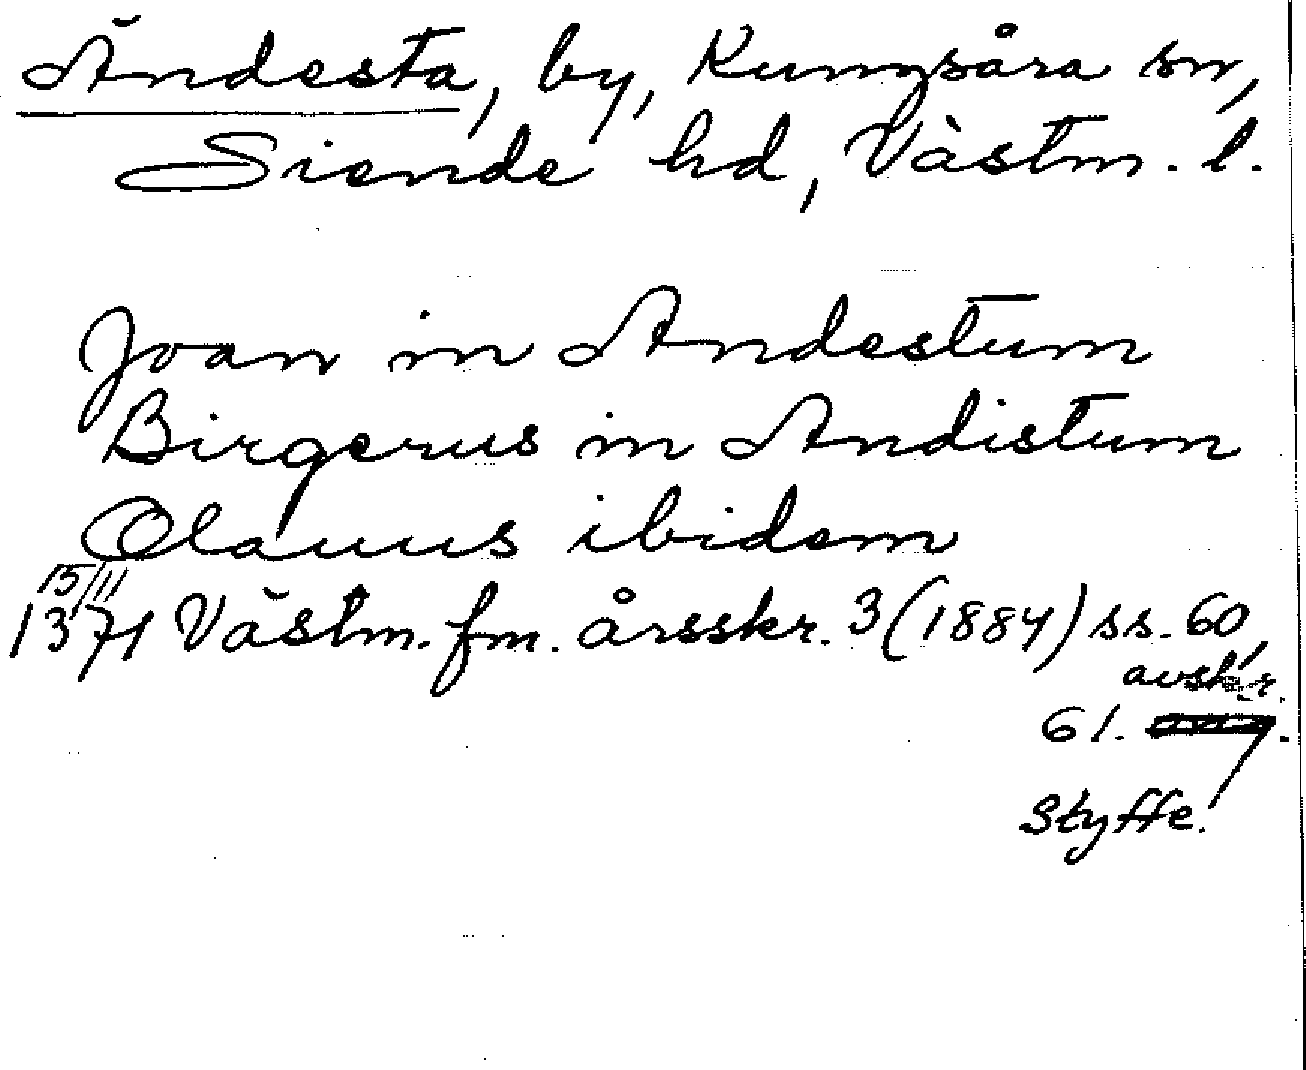 Ändesta, by, Kungsåra sn,
Siende hd, Västm. l.
Joan in Andestum
Birgerus in Andistum
Olauus ibidem
15/11
1371 Västm. fm. årsskr. 3 (1884) ss. 60,
avskr.
61.
Styffe.